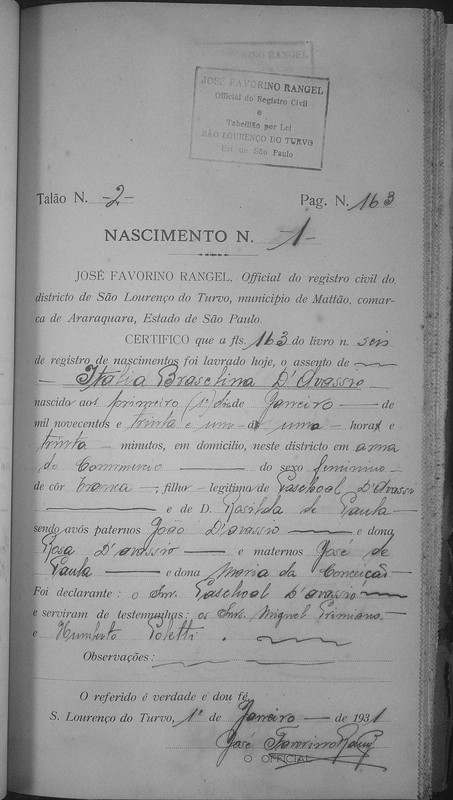 JOSÉ FAVORINO RANGEL
Official do Registro Civil
e
Tabellião por Lei
SÃO LOURENÇO DO TURVO
Est. de São Paulo
Talão N. -2- Pag. N. 163
NASCIMENTO N. -1-
JOSÉ FAVORINO RANGEL, Official do registro civil do
districto de São Lourenço do Turvo, municipio de Mattão, comar-
ca de Araraquara, Estado de São Paulo.
CERTIFICO que a fls. 163 do livro n. seis
de registro de nascimentos foi lavrado hoje, o assento de
Italia Braselina D'Avassio
nascida aos primeiro (1º) de Janeiro de
mil novecentos e trinta e um a uma hora e
trinta minutos, em domicilio, neste districto em
do Commercio do sexo feminino
de côr branca, filha legitima de Paschoal D'Avassio
e de D. Rosilda de Paula
sendo avós paternos João D'avassio e dona
Rosa D'avassio e maternos José de
Paula e dona Maria da Conceição
Foi declarante: o Snr. Paschoal D'avassio
e serviram de testemunhas: os Snrs. Miguel Primiano
e Humberto Poletti.
Observações:
O referido é verdade e dou fé.
S. Lourenço do Turvo, 1º de Janeiro de 1931
José Favorino Rangel
O OFFICIAL